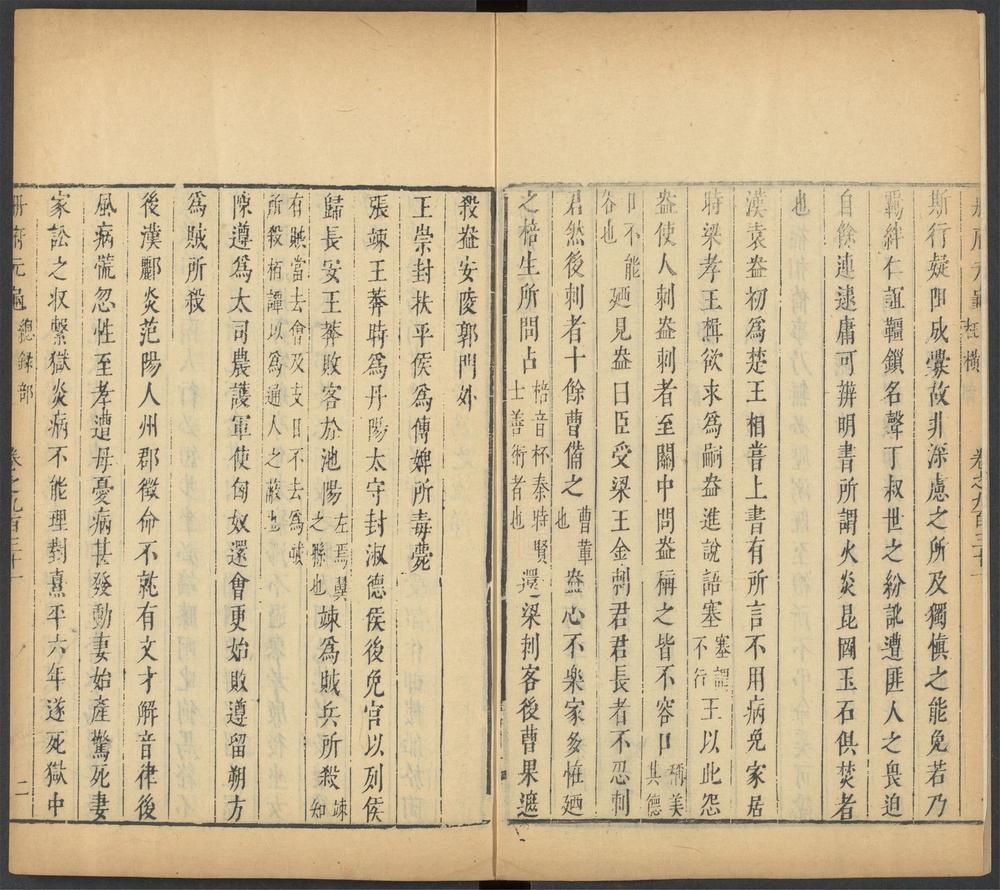 冊府元龜 枉橫 卷之九百三十一
斯行疑阻成釁故非深慮之所及獨慎之能免若乃
羈絆仁誼韁鎖名聲丁叔世之紛訛遭匪人之畏迫
自餘連逮庸可辨明書所謂火炎昆岡玉石俱焚者
也
漢袁盎初爲楚王相嘗上書有所言不用病免家居
時梁孝王楫欲求爲嗣盎進說語塞塞謂不行王以此怨
盎使人刺盎刺者至關中問盎稱之皆不容口稱美其德
口不能容也廼見盎曰臣受梁王金刺君君長者不忍刺
君然後刺者十餘曹備之曹輩也盎心不樂家多怪廼
之棓生所問占棓音杯秦時賢士善術者也還梁刺客後曹果遮
殺盎安陵郭門外
王崇封扶平侯爲傅婢所毒薨
張竦王莽時爲丹陽太守封淑德侯後免官以列侯
歸長安王莽敗客於池陽左馮翼之縣也竦爲賊兵所殺竦知
有賊當去會反支日不去爲賊所殺桓譚以爲通人之蔽也
陳遵爲太司農護軍使匈奴還會更始敗遵留朔方
爲賊所殺
後漢酈炎范陽人州郡徵命不就有文才解音律後
風病慌忽性至孝遭母憂病甚發動妻始產驚死妻
家訟之收繫獄炎病不能理對熹平六年遂死獄中
冊府元龜 總錄部 卷之九百三十一 二